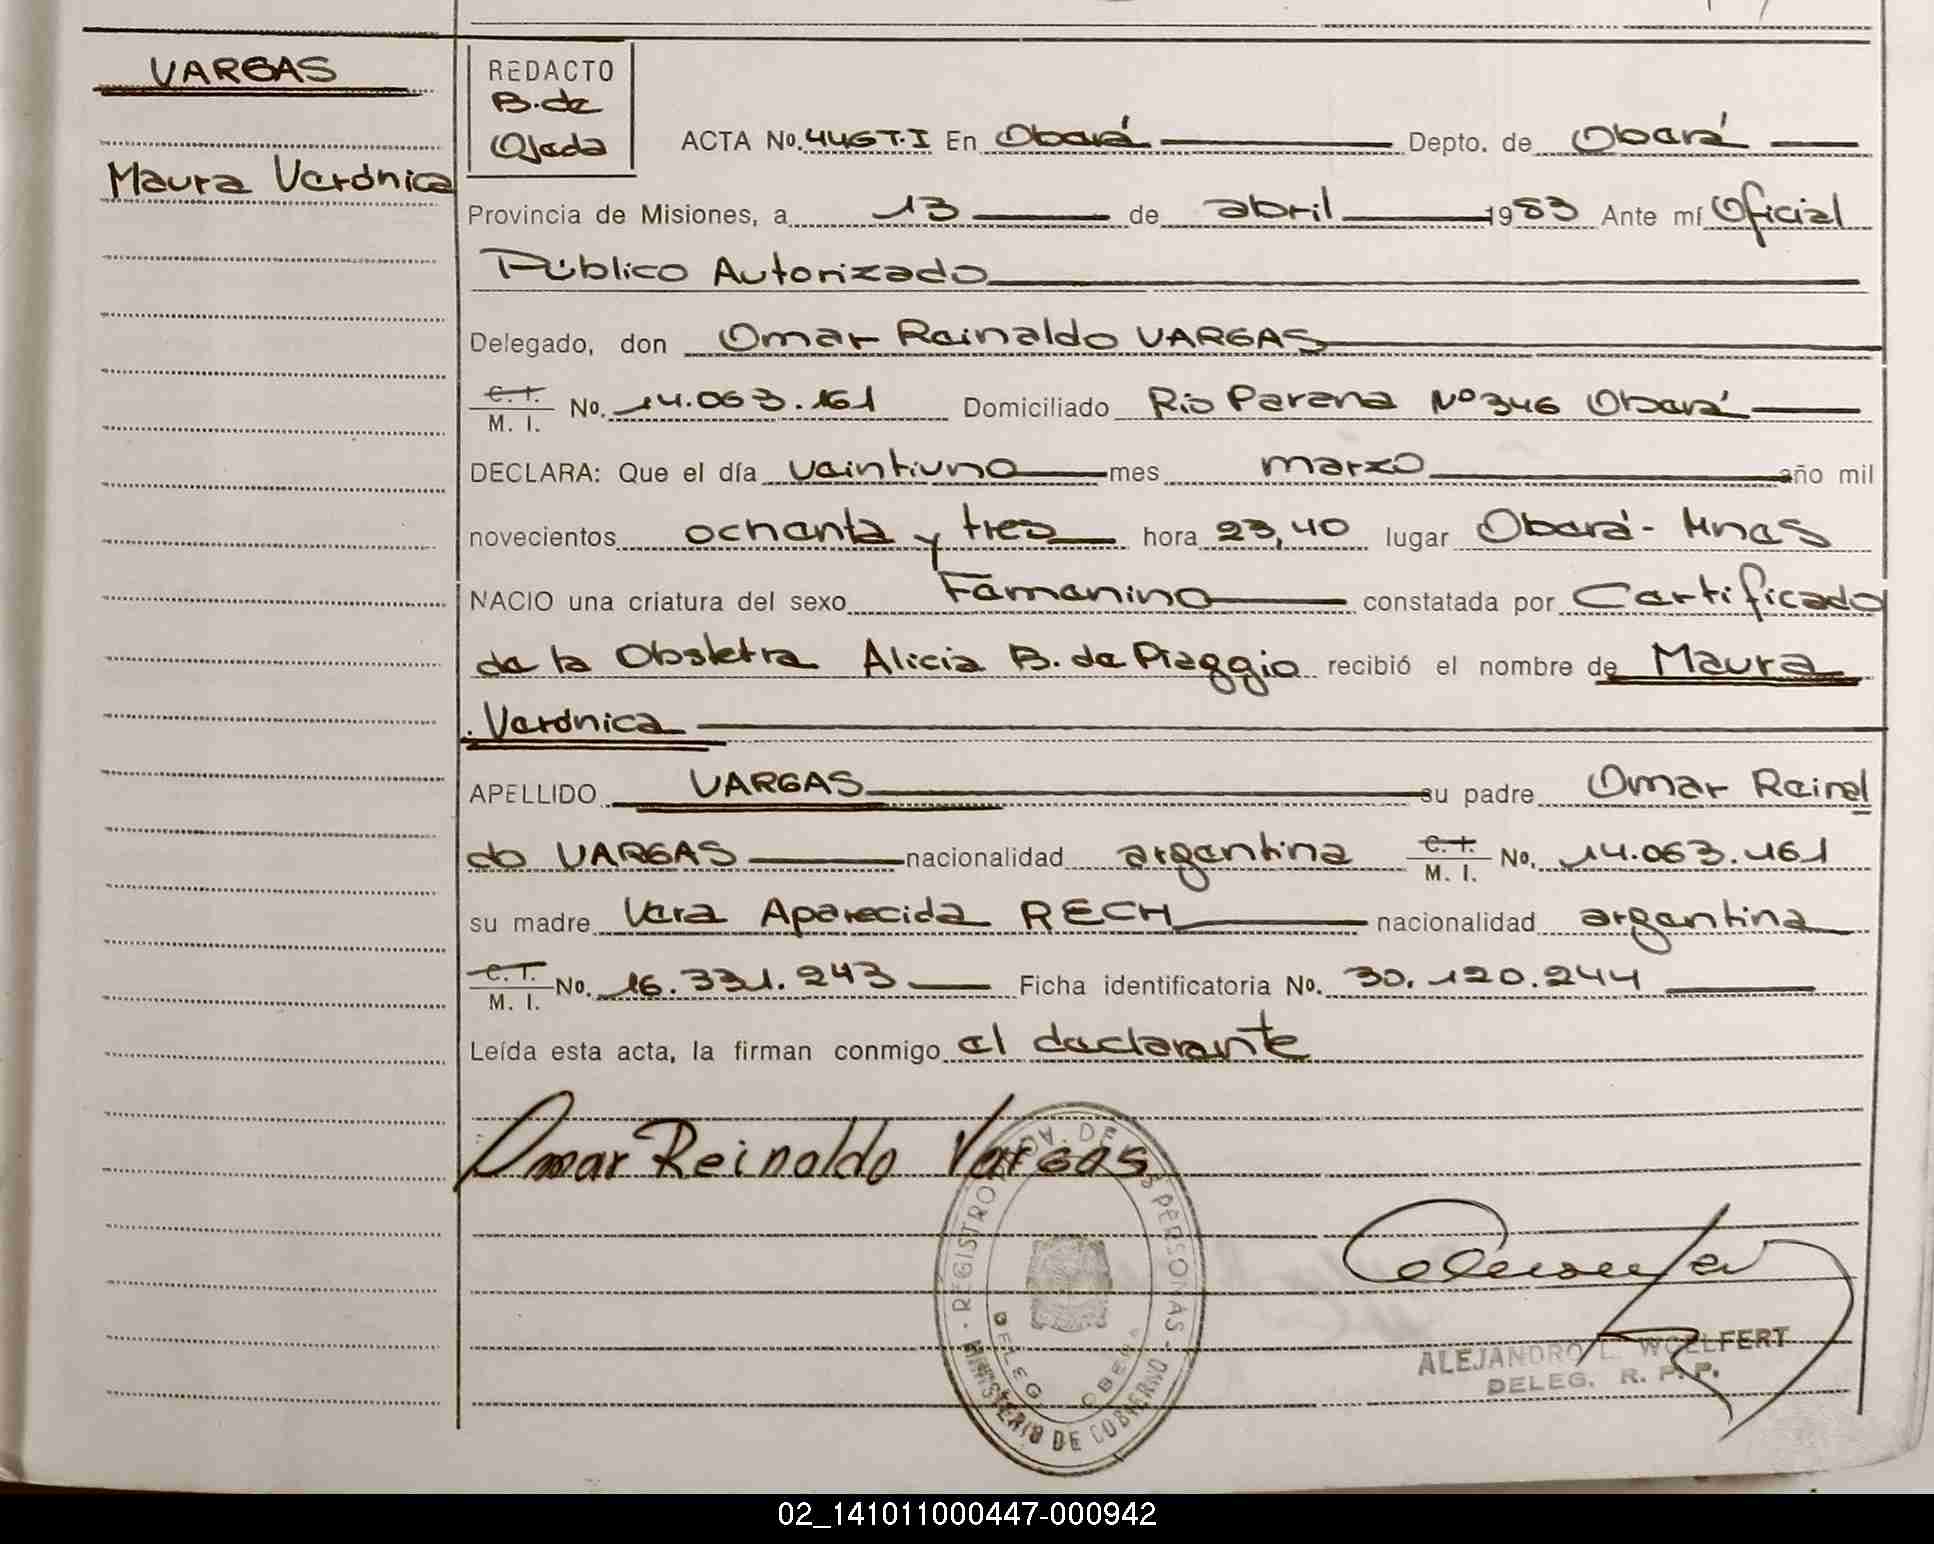 VARGAS
Maura Verónica
REDACTO
B. de
Ojeda
ACTA No. 446 T.I En Oberá Depto. de Oberá
Provincia de Misiones, a 13 de abril 1983 Ante mí Oficial
Público Autorizado
Delegado, don Omar Reinaldo VARGAS
C. I. / M. I. No. 14.063.161 Domiciliado Rio Parana Nº 346 Oberá
DECLARA: Que el día veintiuno mes marzo año mil
novecientos ochenta y tres hora 23,40 lugar Oberá - Mnes
NACIO una criatura del sexo Femenino constatada por Certificado
de la Obstetra Alicia B. de Piaggio recibió el nombre de Maura
Verónica
APELLIDO VARGAS su padre Omar Reinal
do VARGAS nacionalidad argentina C. I. / M. I. No. 14.063.161
su madre Vera Aparecida RECH nacionalidad argentina
C. I. / M. I. No. 16.331.243 Ficha identificatoria No. 30.120.244
Leída esta acta, la firman conmigo el declarante
Omar Reinaldo Vargas
REGISTRO DE LAS PERSONAS
DELEG. OBERA
MINISTERIO DE GOBIERNO
ALEJANDRO L. WOELFERT
DELEG. R. P. P.
02_141011000447-000942